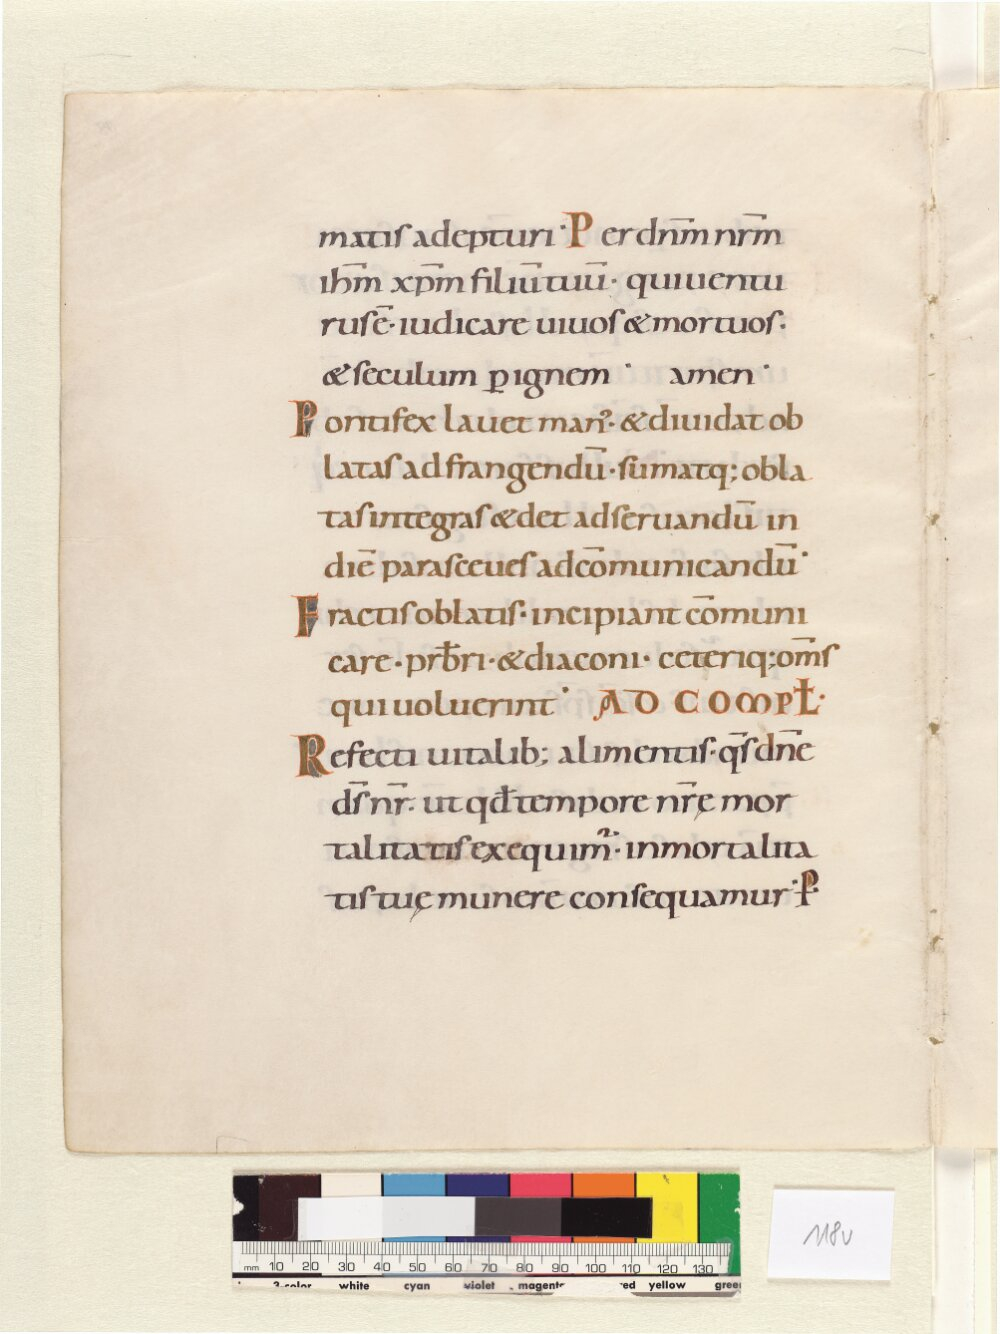 matis adepturi· Per dn̄m nr̄m
ih̄m xp̄m filiū tuū· qui uentu
rus ē· iudicare uiuos & mortuos·
& seculum ꝑ ignem· amen·
Pontifex lauet man᾿· & diuidat ob
latas ad frangendū· sumatq; obla
tas integras & det ad seruandū in
diē parasceues ad cōmunicandū·
Fractis oblatis· incipiant cōmuni
care· prb̄ri· & diaconi· ceteriq; om̄s
qui uoluerint· AD COMPŁ·
Refecti uitalib; alimentis· q̄s dn̄e
ds̄ nr̄· ut qđ tempore nr̄ę mor
talitatis exequim᷑· inmortalita
tis tuę munere consequamur· P̱·
118v
mm 10 20 30 40 50 60 70 80 90 100 110 120 130
3-color white cyan violet magenta red yellow green